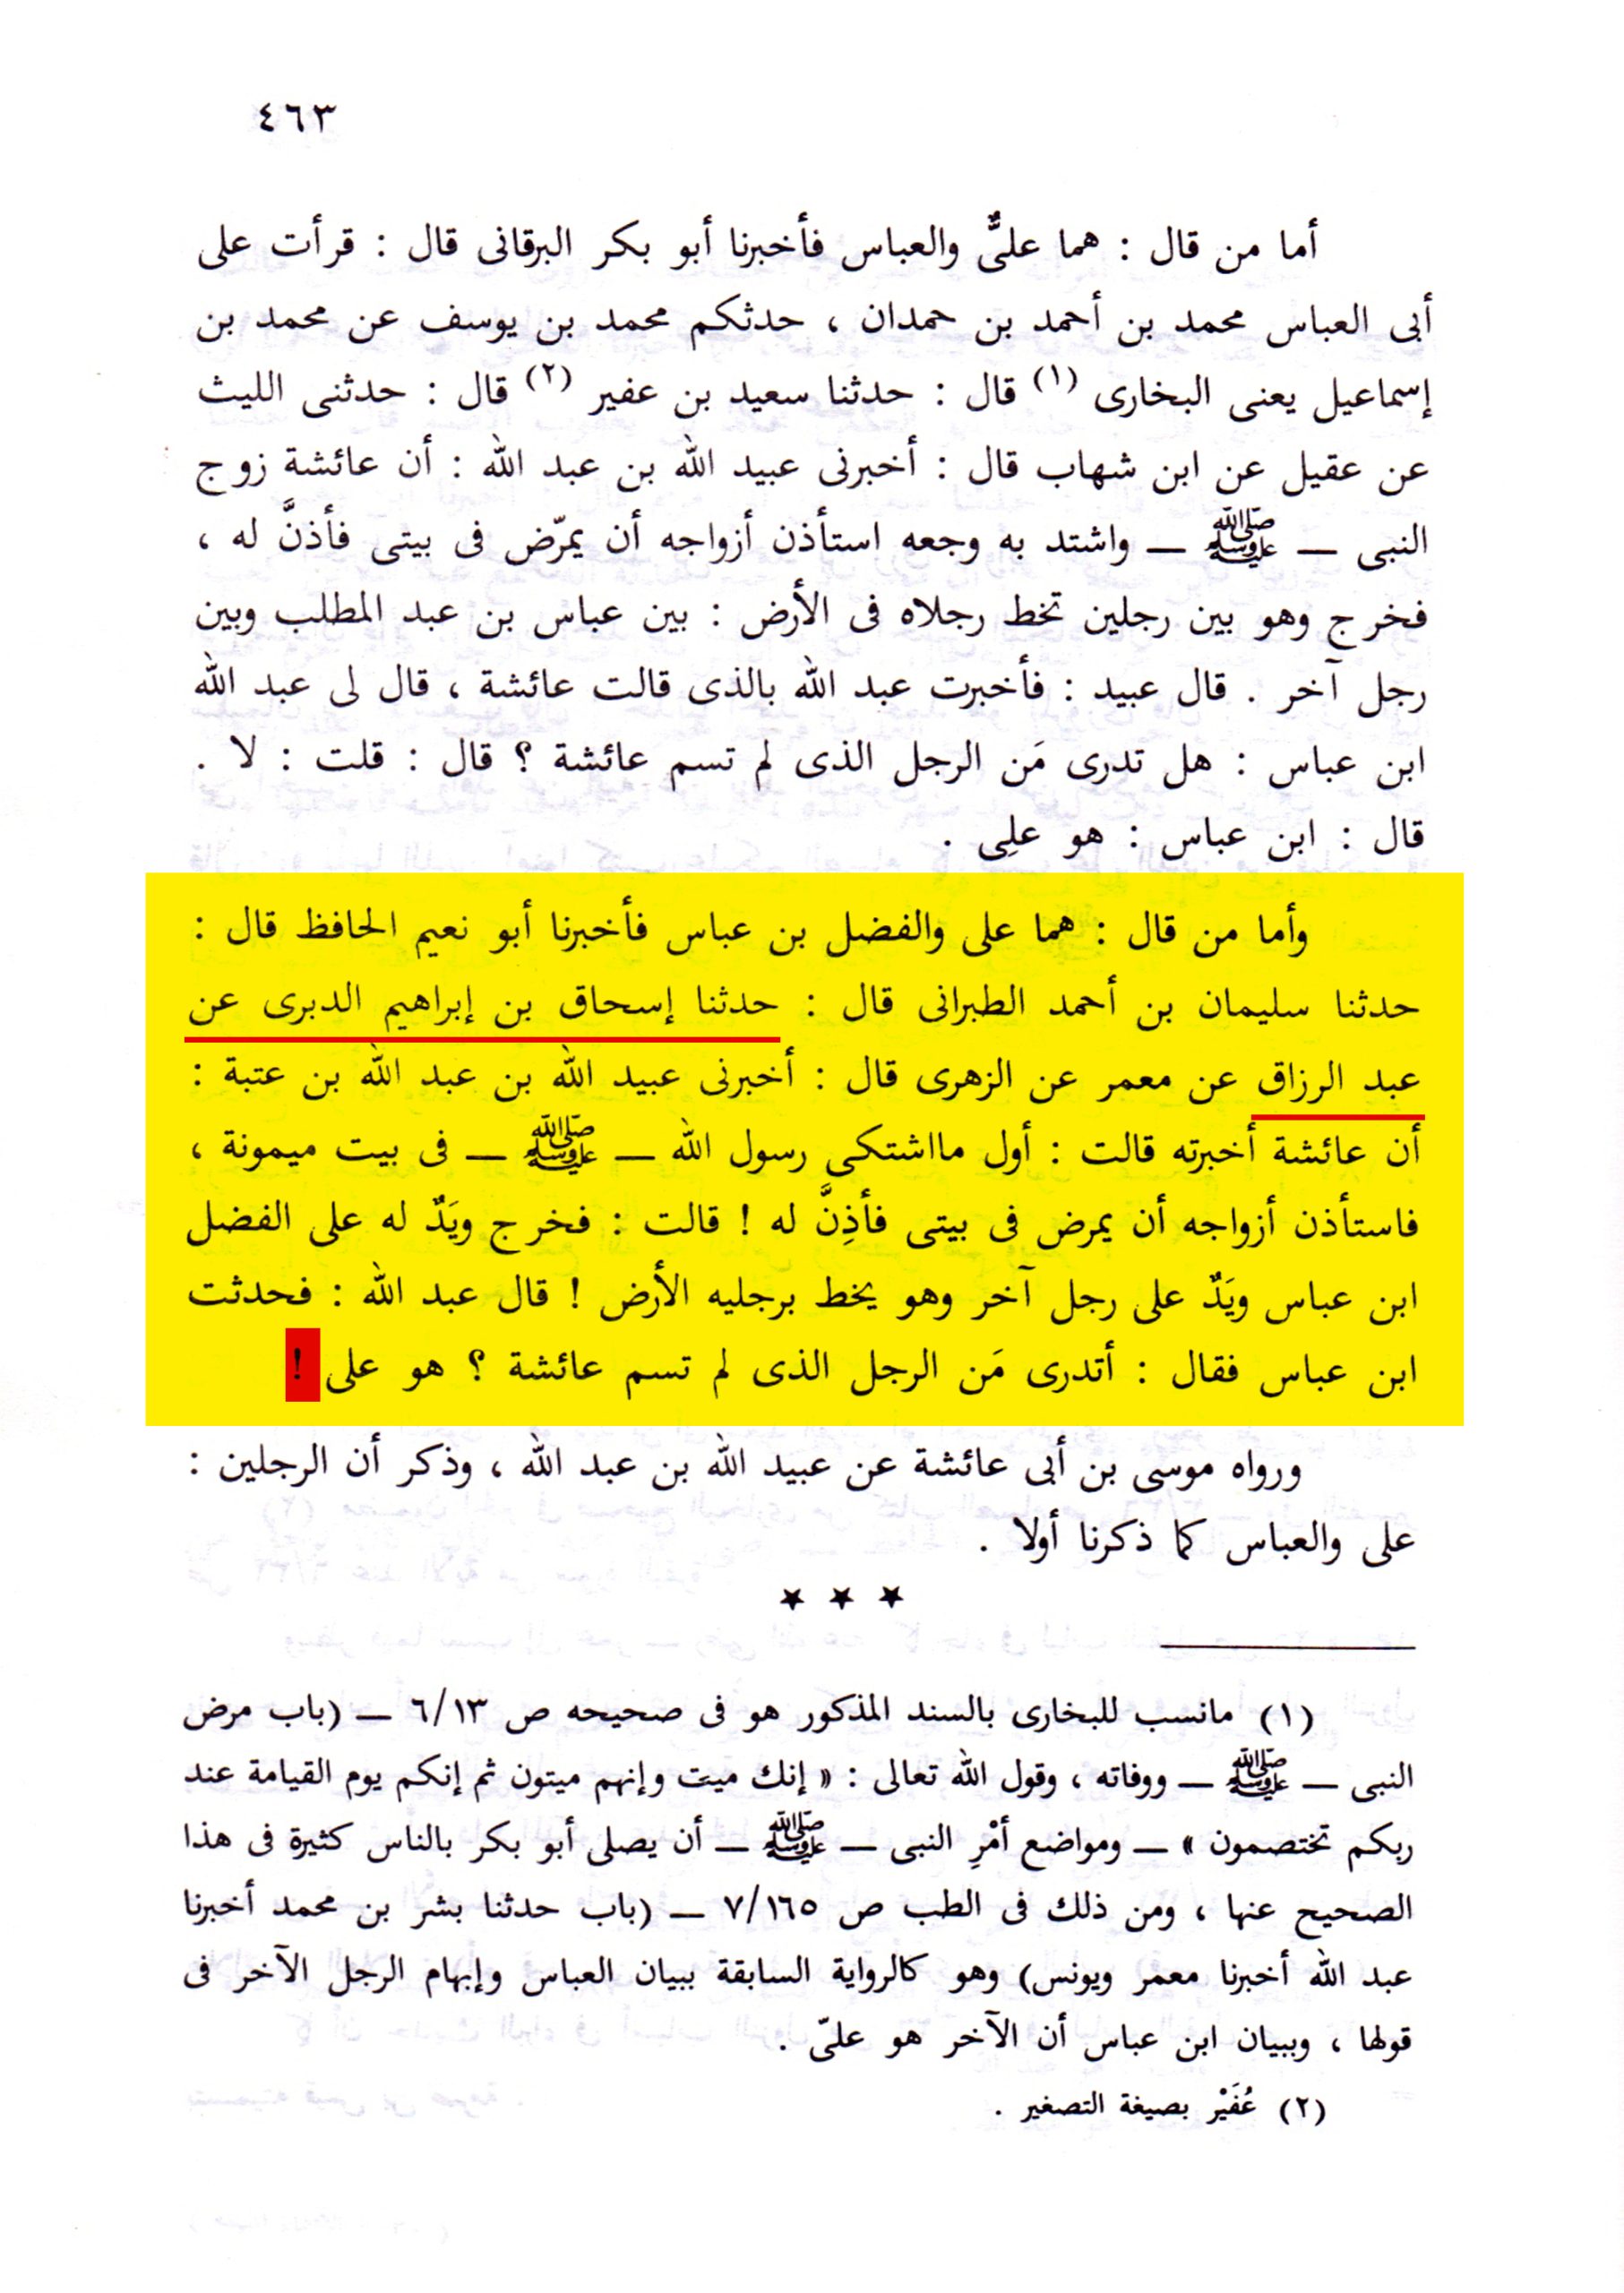 ٤٦٣
أما من قال : هما علىٌّ والعباس فأخبرنا أبو بكر البرقانى قال : قرأت على
أبى العباس محمد بن أحمد بن حمدان ، حدثكم محمد بن يوسف عن محمد بن
إسماعيل يعنى البخارى (١) قال : حدثنا سعيد بن عفير (٢) قال : حدثنى الليث
عن عقيل عن ابن شهاب قال : أخبرنى عبيد الله بن عبد الله : أن عائشة زوج
النبى — ﷺ — واشتد به وجعه استأذن أزواجه أن يمرّض فى بيتى فأذنَّ له ،
فخرج وهو بين رجلين تخط رجلاه فى الأرض : بين عباس بن عبد المطلب وبين
رجل آخر . قال عبيد : فأخبرت عبد الله بالذى قالت عائشة ، قال لى عبد الله
ابن عباس : هل تدرى مَن الرجل الذى لم تسم عائشة ؟ قال : قلت : لا .
قال : ابن عباس : هو علِى .
وأما من قال : هما على والفضل بن عباس فأخبرنا أبو نعيم الحافظ قال :
حدثنا سليمان بن أحمد الطبرانى قال : حدثنا إسحاق بن إبراهيم الدبرى عن
عبد الرزاق عن معمر عن الزهرى قال : أخبرنى عبيد الله بن عبد الله بن عتبة :
أن عائشة أخبرته قالت : أول مااشتكى رسول الله — ﷺ — فى بيت ميمونة ،
فاستأذن أزواجه أن يمرض فى بيتى فأذِنَّ له ! قالت : فخرج ويَدٌ له على الفضل
ابن عباس ويَدٌ على رجل آخر وهو يخط برجليه الأرض ! قال عبد الله : فحدثت
ابن عباس فقال : أتدرى مَن الرجل الذى لم تسم عائشة ؟ هو على !
ورواه موسى بن أبى عائشة عن عبيد الله بن عبد الله ، وذكر أن الرجلين :
على والعباس كما ذكرنا أولا .
★ ★ ★
(١) مانسب للبخارى بالسند المذكور هو فى صحيحه ص ٦/١٣ — (باب مرض
النبى — ﷺ — ووفاته ، وقول الله تعالى : « إنك ميت وإنهم ميتون ثم إنكم يوم القيامة عند
ربكم تختصمون » — ومواضع أمْرِ النبى — ﷺ — أن يصلى أبو بكر بالناس كثيرة فى هذا
الصحيح عنها ، ومن ذلك فى الطب ص ٧/١٦٥ — (باب حدثنا بشر بن محمد أخبرنا
عبد الله أخبرنا معمر ويونس) وهو كالرواية السابقة ببيان العباس وإبهام الرجل الآخر فى
قولها ، وببيان ابن عباس أن الآخر هو علىّ .
(٢) عُفَيْر بصيغة التصغير .